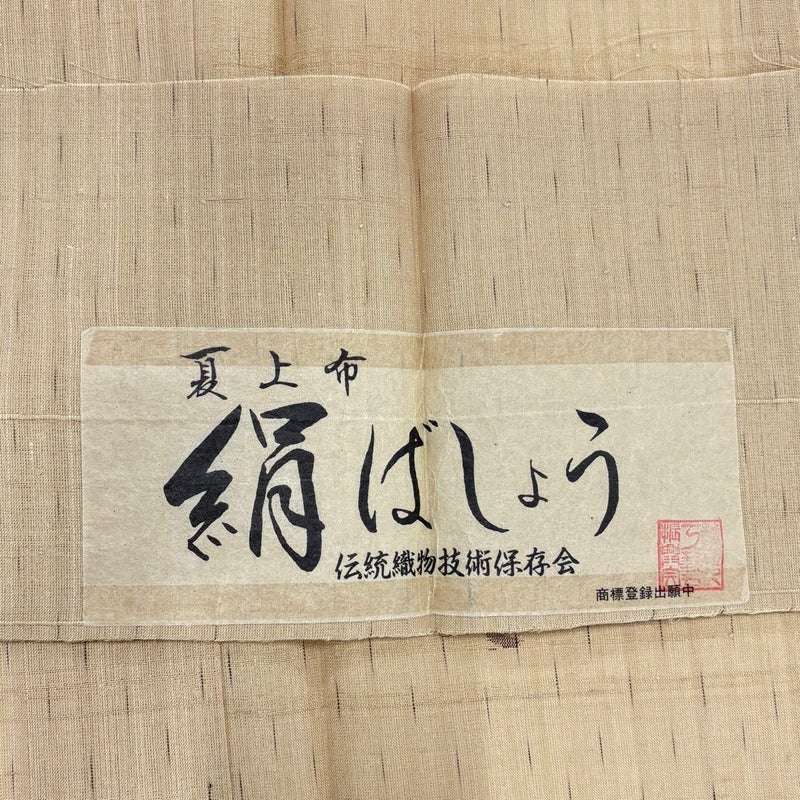 夏上布
絹ばしょう
伝統織物技術保存会
商標登録出願中